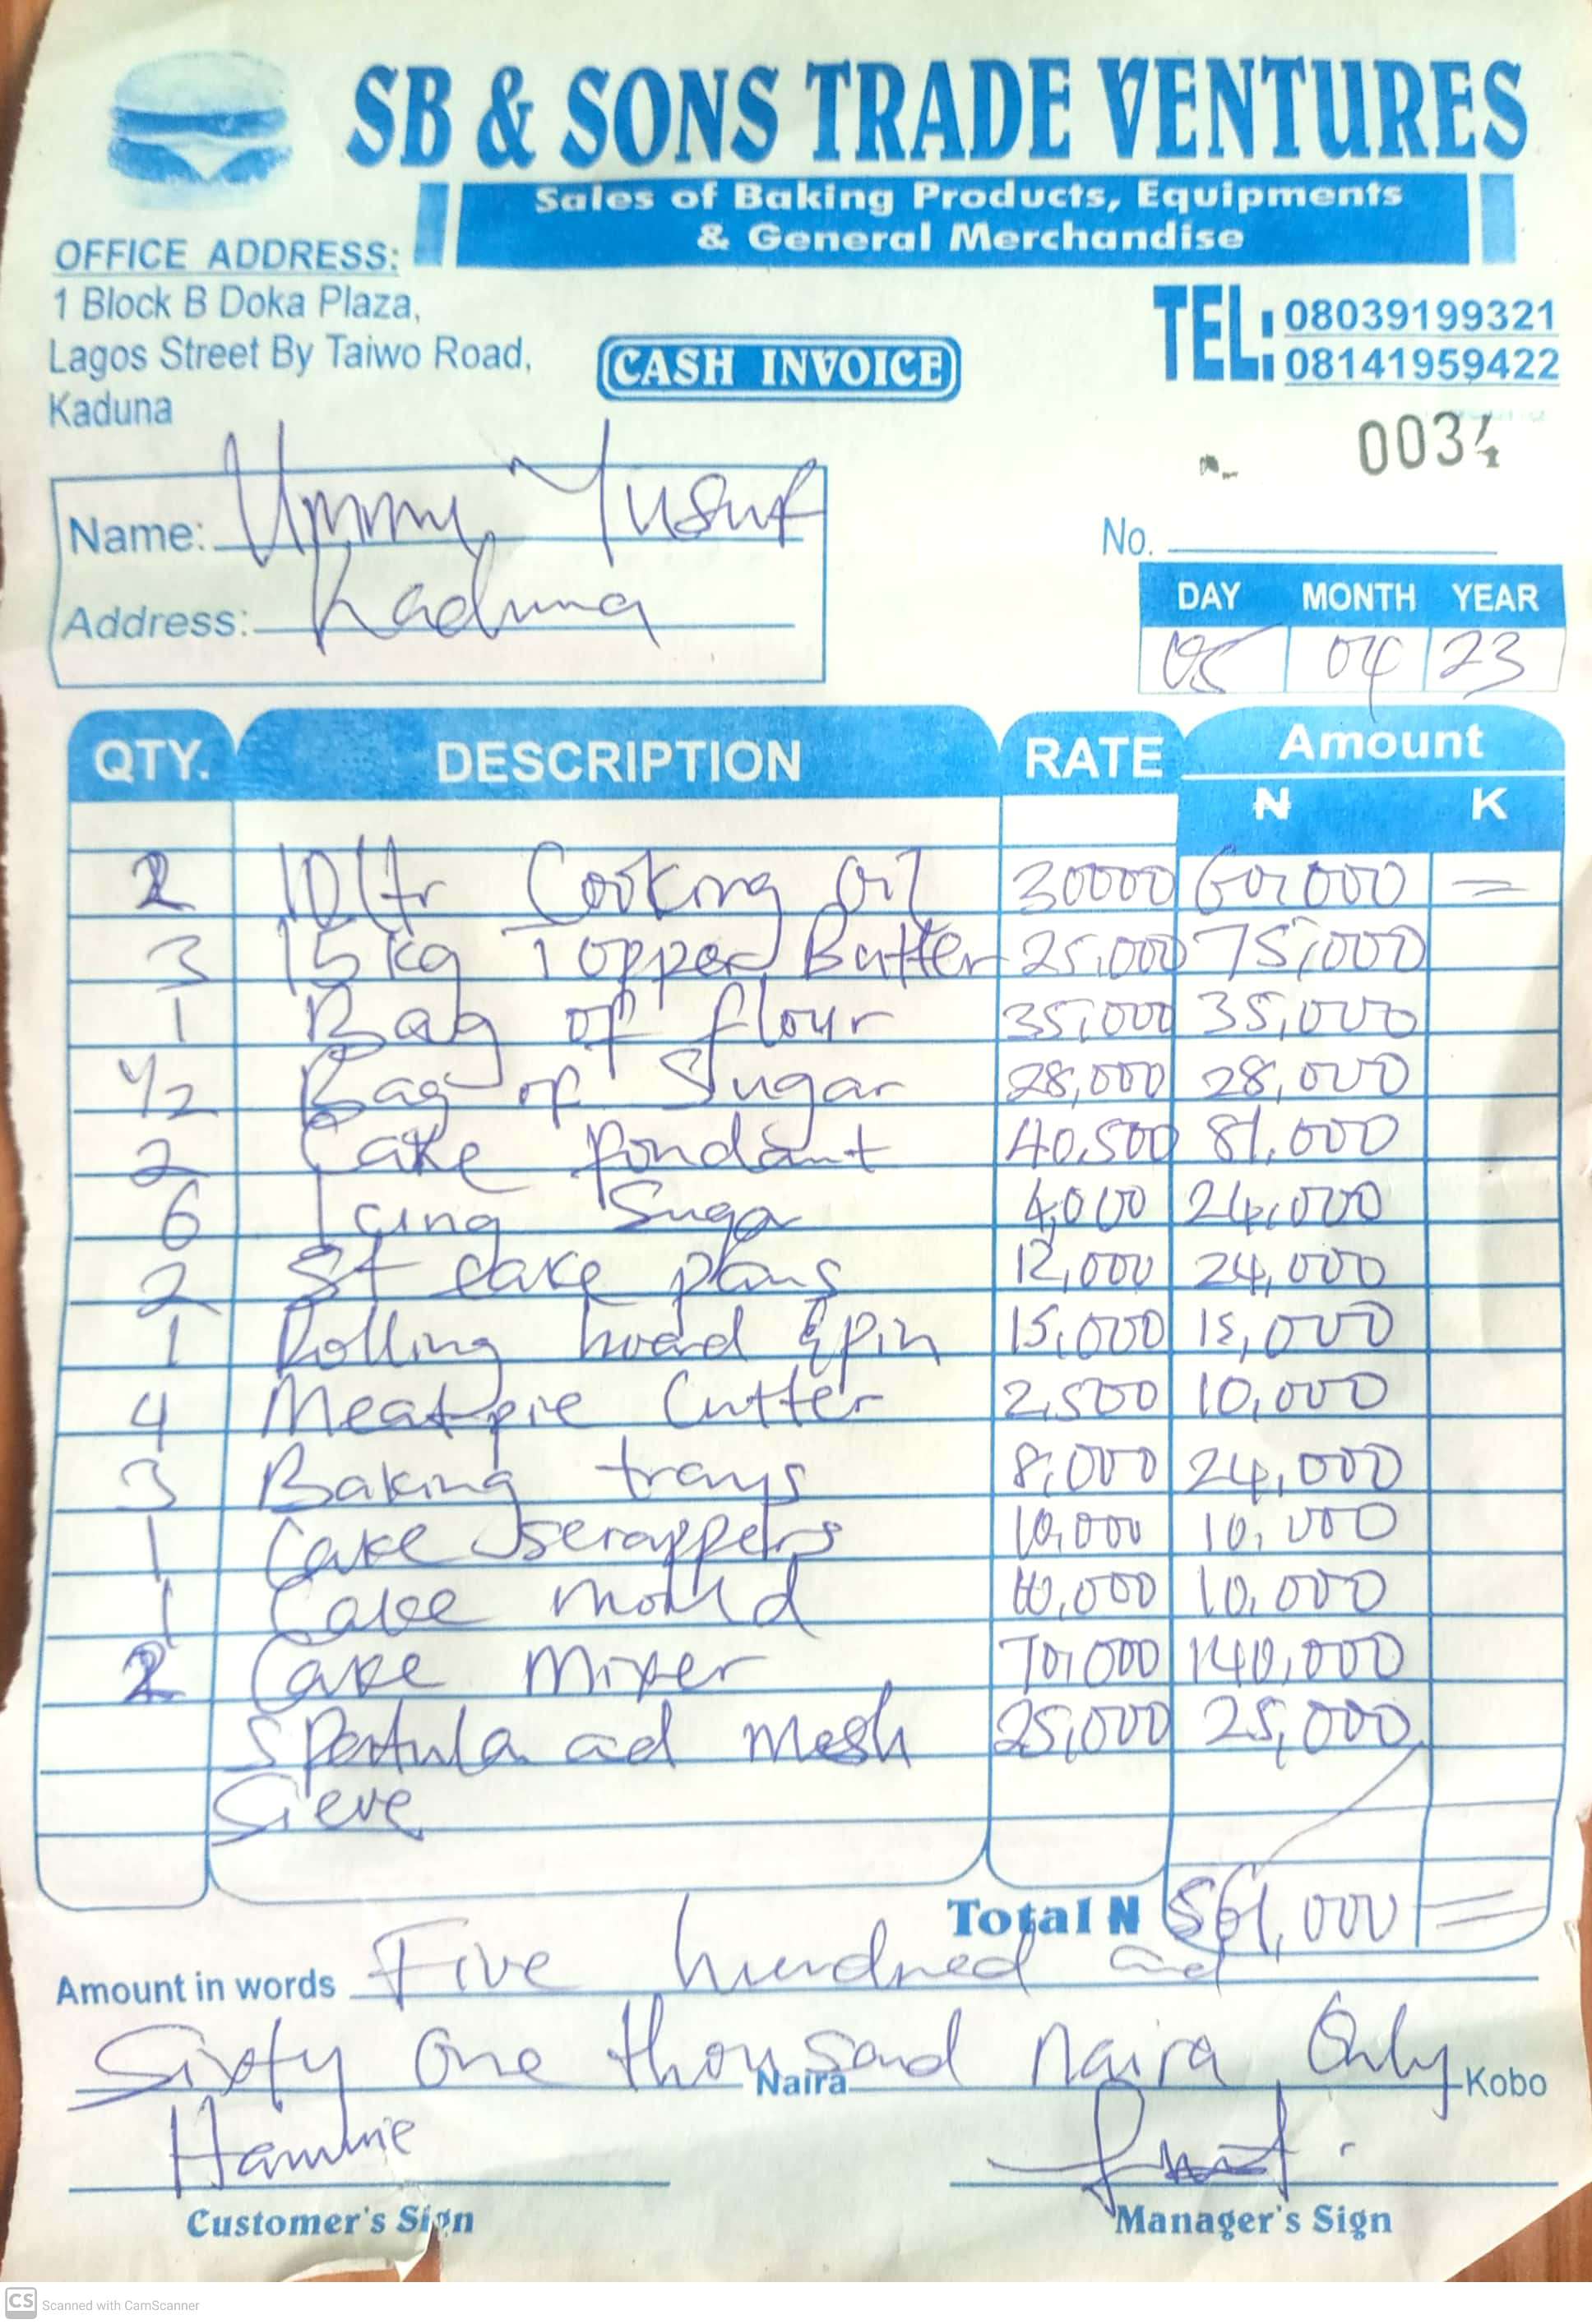 SB & SONS TRADE VENTURES
Sales of Baking Products, Equipments
& General Merchandise
OFFICE ADDRESS:
1 Block B Doka Plaza,
Lagos Street By Taiwo Road,
Kaduna
CASH INVOICE
TEL: 08039199321
08141959422
0034
Name: Ummu Yusuf
Address: Kaduna
No.
DAY MONTH YEAR
05 04 23
QTY. DESCRIPTION RATE Amount
₦ K
2 10 ltr Cooking Oil 30000 60,000 =
3 15kg Topper Butter 25,000 75,000
1 Bag of flour 35,000 35,000
1/2 Bag of Sugar 28,000 28,000
2 Cake fondant 40,500 81,000
6 Icing Suga 4,000 24,000
2 St cake pans 12,000 24,000
1 Rolling board & pin 15,000 15,000
4 Meatpie Cutter 2,500 10,000
3 Baking trays 8,000 24,000
1 Cake scrappers 10,000 10,000
1 Cake mould 10,000 10,000
2 Cake Mixer 70,000 140,000
Spartula ad Mesh 25,000 25,000
Sieve
Total N 561,000 =
Amount in words Five hundred and
Sixty One thousand Naira Only
Naira Kobo
Hammie
Customer's Sign Manager's Sign
CS Scanned with CamScanner